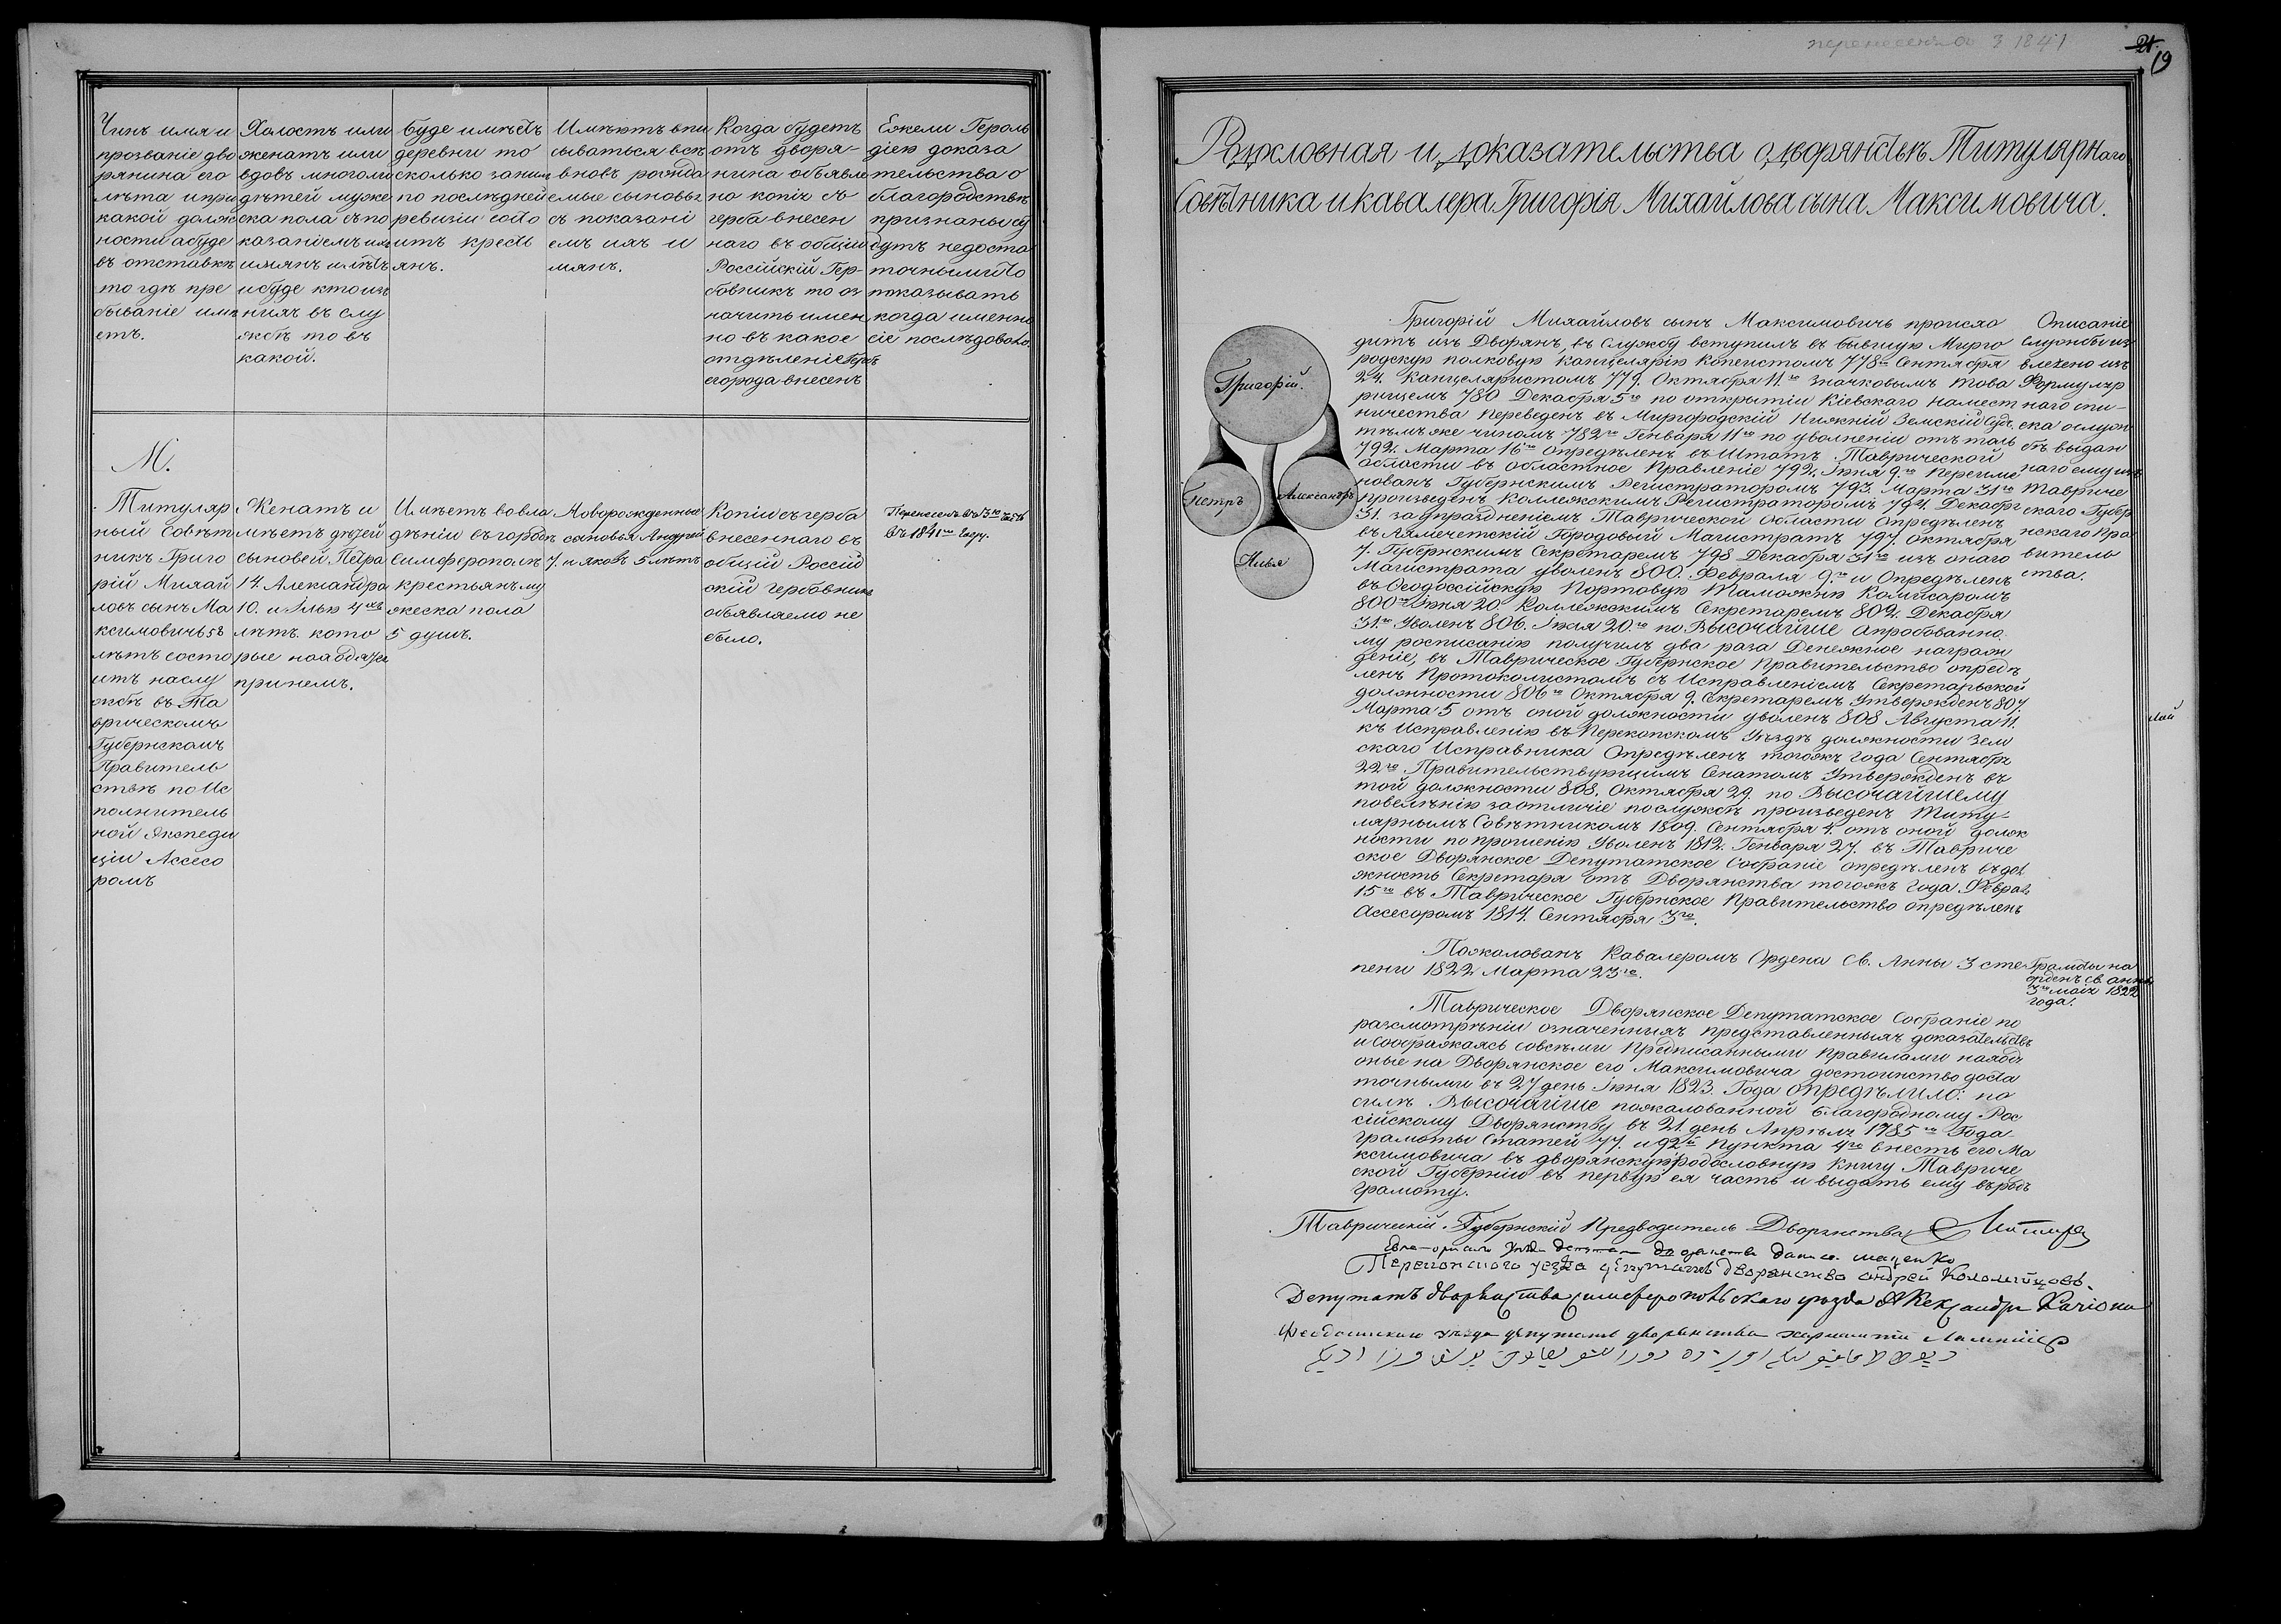 Чинъ имя и
прозваніе дво
рянина его
лѣта и при
какой долж
ности абуде
въ отставкѣ
то гдѣ пре
бываніе имѣ
етъ.
Холостъ или
женатъ или
вдовъ многоли
дѣтей муже
ска пола съпо
казаніемъ их
имянъ имѣетъ
ибуде кто изъ
нихъ въ слу
жбѣ то въ
какой.
Буде имѣетъ
деревни то
сколько за ним
по послѣдней
ревизіи состо
итъ кресть
янъ.
Имѣютъ впи
сываться всѣ
вновь рожда
емые сыновья
съ показані
емъ ихъ и
мянъ.
Когда будетъ
отъ дворя-
нина объявле
но копія съ
герба внесен
наго въ общій
Россійскій Гер-
бовникъ то оз
начить имен
но въ какое
отдѣленіе Герб
егорода внесенъ
Ежели Героль
діею доказа
тельства о
благородствѣ
признаны бу
дутъ недоста
точными то
показывать
когда именно
сіе послѣдовало.
М.
Титуляр
ный Совѣт
никъ Григо
рій Михай
ловъ сынъ Ма
ксимовичь 58
лѣтъ состо
итъ на слу
жбѣ въ Та
врическомъ
Губернскомъ
Правитель
ствѣ по Ис
полнитель
ной Экспеди
ціи Ассесо
ромъ
Женатъ и
мѣетъ дѣтей
сыновей Петра
14. Александра
10. и Илью 4хъ
лѣтъ. кото
рые находятся
принемъ.
Имѣетъ во вла
дѣніи въ городѣ
Симферополѣ
крестьянъ му
жеска пола
5 душъ.
Новорожденные
сыновья Андрей
7. и Яковъ 5 лѣтъ
Копіи съ герба
внесеннаго въ
общій Россій
скій гербовникъ
объявляемо не
было.
Перенесенъ въ 3ю часть
въ 1841м году.
перенесенъ въ 3 1841
21.
19
Родословная и доказательства о дворянствѣ Титулярнаго
Совѣтника и кавалера Григорія Михайлова сына Максимовича.
Григорій.
Петръ
Александръ
Илья
Григорій Михайловъ сынъ Максимовичь происхо
дитъ изъ Дворянъ, въ службу вступилъ въ бывшую Мирго
родскую полковую канцелярію Копеистомъ 778го Сентября
24. Канцеляристомъ 779. Октября 11.го Значковымъ Това
рищемъ 780 Декабря 5го по открытіи Кіевскаго Намест
ничества Переведенъ въ Миргородскій Нижній Земскій Судъ,
тѣмъ же чиномъ 782го Генваря 11го по уволненіи отъ толь
792. Марта 16го опредѣленъ въ Штатъ Таврической
области въ областное Правленіе 792. Іюня 9.го Переиме
нованъ Губернскимъ Регистраторомъ 793. Марта 31го
Произведенъ Коллежскимъ Регистраторомъ 794. Декабря
31. за упраздненіемъ Таврической области Опредѣленъ
въ Ахмечетскій Городовый Магистратъ 797. октября
7. Губернскимъ Секретаремъ 798 Декабря 31го изъ онаго
Магистрата уволенъ 800. Февраля 9.го и Опредѣленъ
въ Ѳеодоссійскую Портовую Таможню Комисаромъ
800го Іюня 20 Коллежскимъ Секретаремъ 802. Декабря
31.го Уволенъ 806. Іюля 20.го по Высочайше апробованно
му росписанію получилъ два раза Денежное награж
деніе, въ Таврическое Губернское Правительство опредѣ
ленъ Протоколистомъ съ Исправленіемъ Секретарьской
должности 806го Октября 9. Секретаремъ Утвержденъ 807.
Марта 5 отъ оной должности уволенъ 808 Августа 11.
къ Исправленію въ Перекопскомъ Уѣздѣ должности Зем
скаго Исправника Опредѣленъ тогожъ года Сентября
22го Правительствующимъ Сенатомъ Утвержденъ въ
той должности 808. Октября 29. по Высочайшему
повелѣнію за отличіе по службѣ произведенъ Титу
лярнымъ Совѣтникомъ 1809. Сентября 4. отъ оной долж
ности по прошенію Уволенъ 1812. Генваря 27. въ Тавриче
ское Дворянское Депутатское Собраніе опредѣленъ въ дол
жность Секретаря отъ Дворянства тогожъ года Феврал.
15го въ Таврическое Губернское Правительство опредѣленъ
Ассесоромъ 1814. Сентября 3го.
Описаніе
службы из
влечено изъ
Формуляр
наго спи-
ска ослуж
бѣ выдан
наго ему изъ
Тавриче
скаго Губер
нскаго Пра
витель
ства.
Пожалованъ Кавалеромъ Ордена Св. Анны 3 сте
пени 1822 Марта 23го.
Грамоты на
орденъ св. анны
3го маія 1822
года.
Таврическое Дворянское Депутатское Собраніе по
разсмотрѣніи означенныхъ представленныхъ доказательствъ
и Соображаясь совсѣми Предписанными Правилами находя
оные на Дворянское его Максимовича достоинство доста
точными въ 27 день Іюня 1823. Года опредѣлило: по
силѣ Высочайше пожалованной Благородному Рос
сійскому Дворянству въ 21. день Апрѣля 1785го Года
Грамоты Статей 77. и 92й Пункта 4го Внесть его Ма
ксимовича въ дворянскую родословную Книгу Тавриче
ской Губерніи въ первую ея часть и выдать ему въ родъ
Грамоту.
Таврическій Губернскій Предводитель Дворянства
Мащенко
Перекопского уезда депутатъ дворянства андрей Коломейцовъ.
Депутатъ дворянства симферопольскаго уезда Александръ
Феодосийскаго уезда депутатъ дворянства